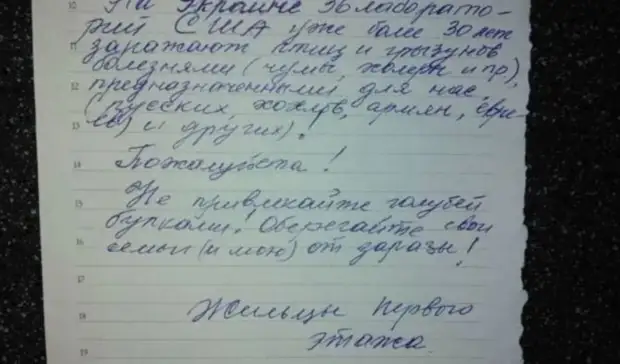 10
На Украине 36 лаборато-
рий США уже более 30 лет
11
заражают птиц и грызунов
болезнями (чумы, холеры и пр),
12
предназначенными для нас,
(русских, хохлов, армян, евре-
13
ев) и других).
14
Пожалуйста!
15
Не привлекайте голубей
булками! Оберегайте свои
16
семьи (и мою) от заразы!
17
18
Жильцы первого
этажа
19